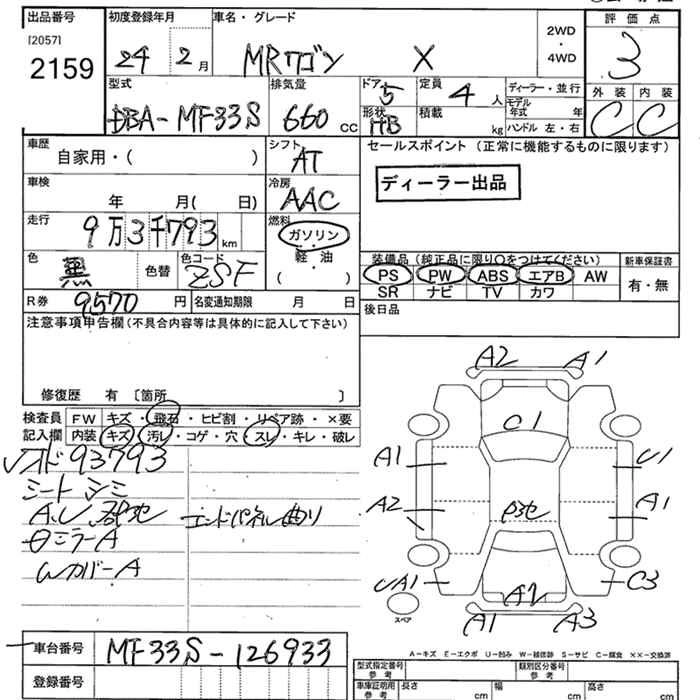 出品番号
[2057]
2159
初度登録年月
24 2月
車名・グレード
MRワゴン X
2WD
・
4WD
評価点
3
外装 内装
C C
型式
DBA-MF33S
排気量
660 cc
ドア 5
形状 HB
定員
4 人
積載
kg
ディーラー・並行
モデル年式 年
ハンドル 左・右
車歴
自家用・( )
シフト
AT
車検
年 月( 日)
冷房
AAC
走行
9万3千793 km
燃料
ガソリン
軽油
( )
色
黒 色替
色コード
ZSF
R券 9570 円
名変通知期限 月 日
セールスポイント (正常に機能するものに限ります)
ディーラー出品
装備品 (純正品に限り○をつけてください)
PS PW ABS エアB AW
SR ナビ TV カワ
新車保証書
有・無
後日品
注意事項申告欄(不具合内容等は具体的に記入して下さい)
修復歴 有 〔箇所 〕
検査員記入欄
FW キズ・飛石・ヒビ割・リペア跡・×要
内装 キズ・汚レ・コゲ・穴・スレ・キレ・破レ
93793
シート シミ
A.U
エンドパネル曲り
ミラーA
カバーA
A2 A1
C1
A1 U1
A2 A1
UA1 C3
A2
A1 A3
スペア
A-キズ E-エクボ U-凹み W-補修跡 S-サビ C-腐食 ××-交換済
車台番号
MF33S-126933
登録番号
型式指定番号
参考
類別区分番号
参考
車庫証明用
参考
長さ cm
幅 cm
高さ cm